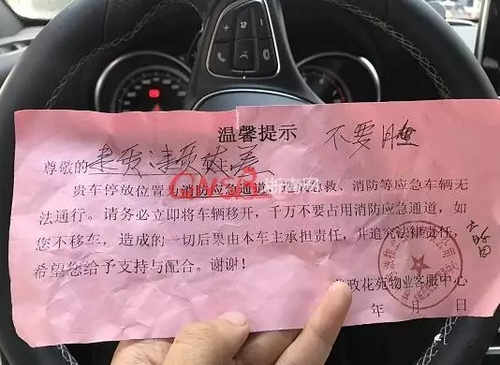 温馨提示 不要脸
尊敬的
贵车停放位置为消防应急通道,造成急救、消防等应急车辆无
法通行。请务必立即将车辆移开,千万不要占用消防应急通道,如
您不移车,造成的一切后果由本车主承担责任,并追究法律责任,
希望您给予支持与配合。谢谢!
政花苑物业客服中心
年 月 日